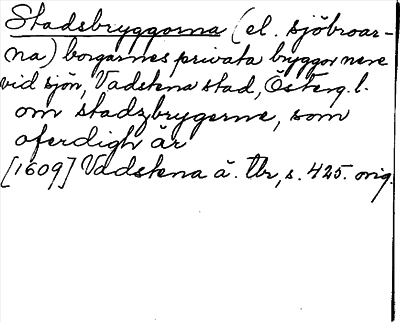 Stadsbryggorna (el. sjöbroar-
na) borgarnes privata bryggor nere
vid sjön, Vadstena stad, Österg. l.
om stadzbrygerne, som
oferdigh är
[1609] Vadstena ä. Tbr, s. 425. orig.